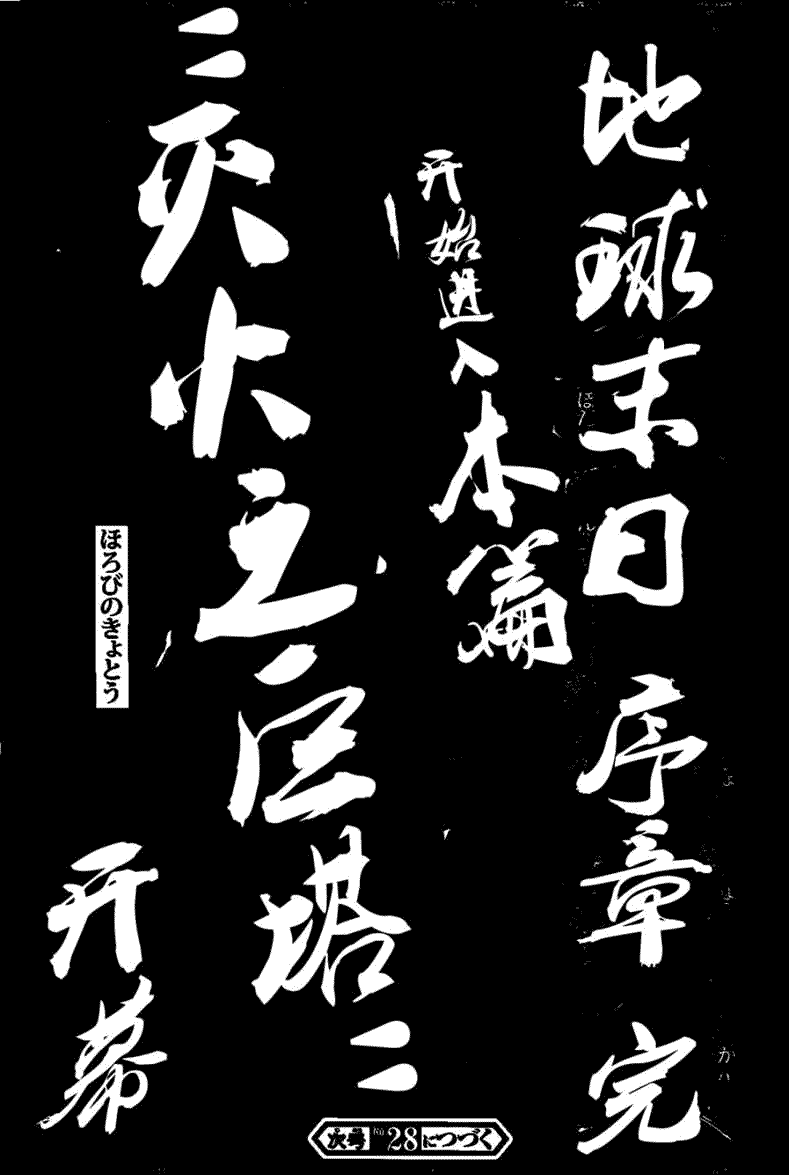 地球末日 序章 完
开始进入本篇
"灭火之巨塔"
ほろびのきょとう
开幕
次号 No.28につづく